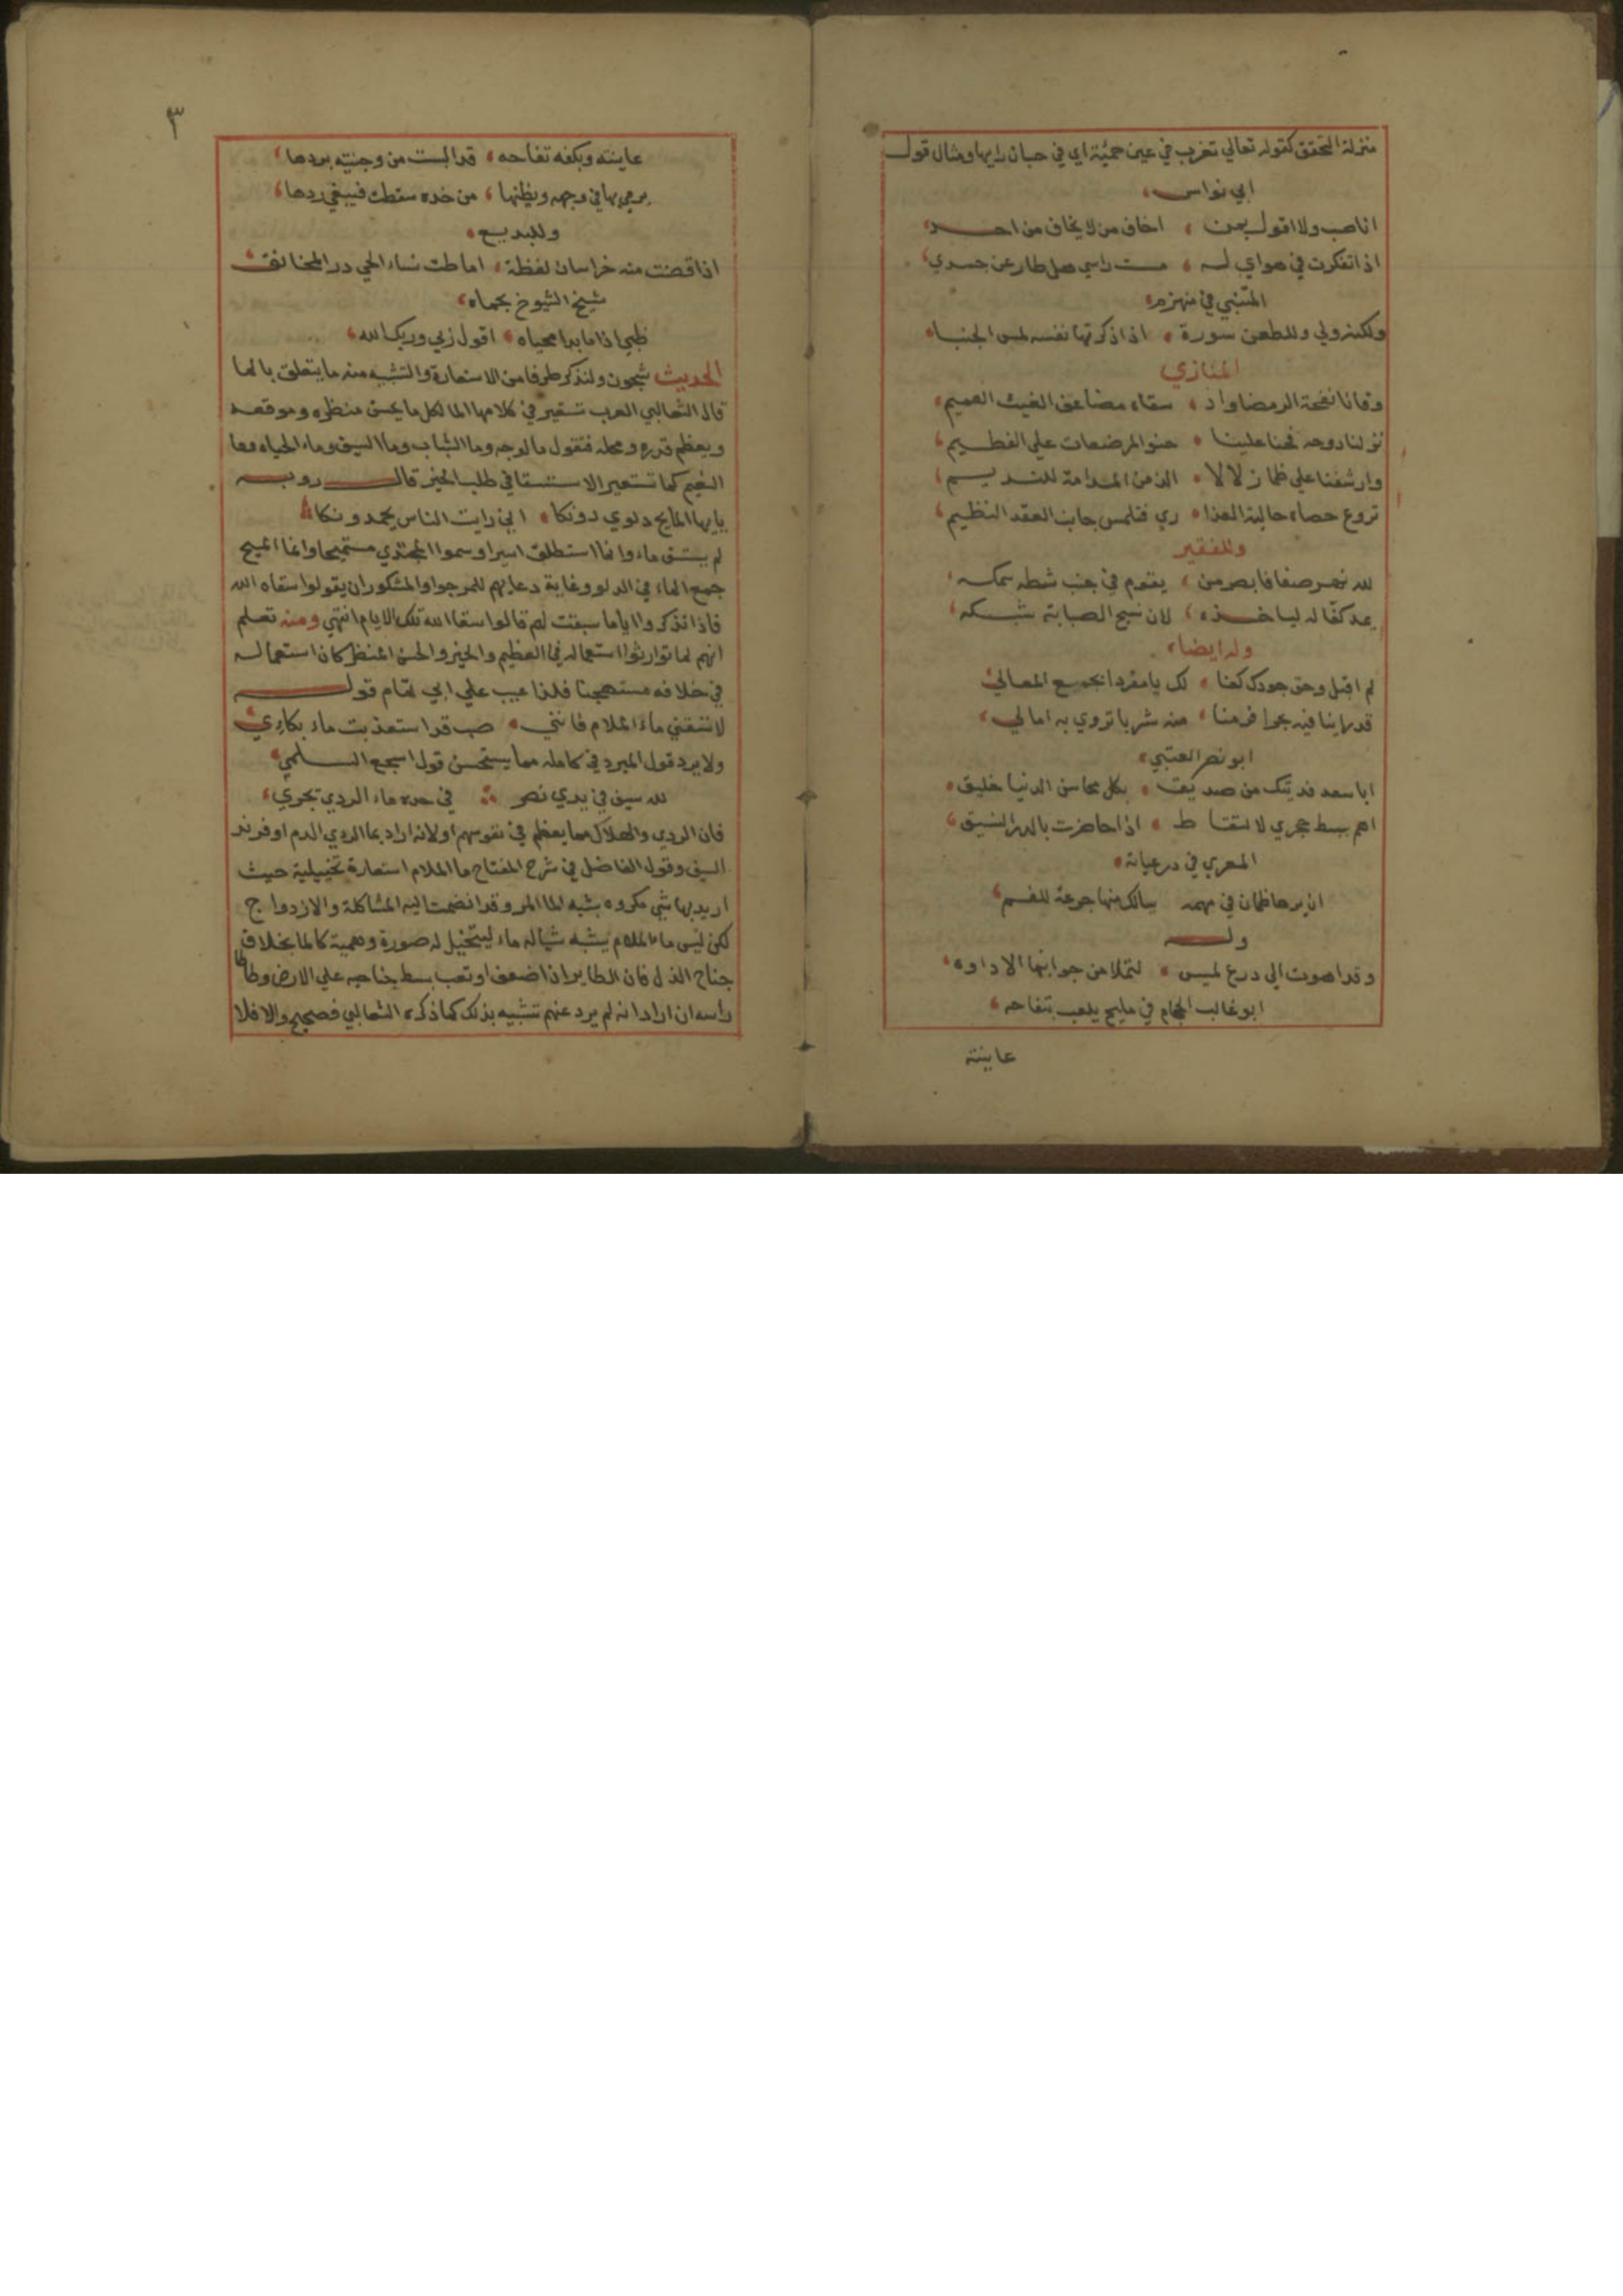 منزلة التحقق كقوله تعالي تغرب في عين حمئة اي في حبان رايها ومثال قول
ابي نواس
انا صب ولا اقول بمن اخاف من لا يخاف من احد
اذا تفكرت في هواي له مست راسي هل طار عن جسدي
المتنبي في منهزم
ولكنه ولي وللطعن سورة اذا ذكرتها نفسه لمس الجنبا
المنازي
وقانا لفحة الرمضا واد سقاه مضاعف الغيث العميم
نزلنا دوحه فحنا علينا حنو المرضعات علي الفطيم
وارشفنا علي ظما زلالا الذ من المدامة للنديم
تروع حصاه حالية العذا ري فتلمس جانب العقد النظيم
وللفقير
لله نهر صفا فابصر من يقوم في جنب شطه سمكه
يمد كفا له لياخذه لان نسج الصبا به شبكه
وله ايضا
لم اقبل وحق جودك كفا لك يا مفردا بجمع المعالي
قد راينا فيه بحرا فرمنا منه شربا تروي به امالي
ابو نصر العتبي
ابا سعد فديتك من صديق بكل محاسن الدنيا خليق
اهم ببسط حجري لالتقا ط اذا حاضرت بالدر النسيق
المعري في درعياته
ان يرها ظمان في مهمه يسالك منها جرعة للفم
وله
وقد اهوت الي درع لميس لتملا من جوانبها الاداوه
ابو غالب الحجام في مليح يلعب بتفاحه
عاينته
٣
عاينته وبكفه تفاحه قد البست من وجنتيه بردها
يرمي بها في وجهه ويظنها من خده سقطت فيبغي ردها
وللبديع
اذا اقتضت منه خراسان لفظة اماطت نساء الحي در المخانق
شيخ الشيوخ بحماه
ظبي اذا ما بدا محياه اقول ربي وربك الله
الحديث شجون ولنذكر طرفا من الاستعارة والتشبيه منه ما يتعلق بالما
قال الثعالبي العرب تستعير في كلامها الما لكل ما يحسن منظره وموقعه
ويعظم قدره ومحله فتقول ما الوجه وما الشباب وما السيف وماء الحياه وما
النعيم كما تستعير الاستسقا في طلب الخير قال روبه
يايها المايح دلوي دونكا اني رايت الناس يحمدونكا
لم يستق ماء وانما استطلق اسيرا وسموا المجتدي مستميحا وانما الميح
جمع الماء في الدلو وغاية دعايهم للمرجو والمشكور ان يقولوا سقاه الله
فاذا تذكروا اياما سبقت لهم قالوا سقا الله تلك الايام انتهي ومنه تعلم
انهم لما توارثوا استعماله في العظيم والخير والحسن المنظر كان استعماله
في خلافه مستهجنا فلذا عيب علي ابي تمام قوله
لا تسقني ماء الملام فانني صب قد استعذبت ماء بكاري
ولا يرد قول المبرد في كامله مما يستحسن قول اسجع السلمي
لله سيف في يدي نصر في حده ماء الردي تجري
فان الردي والهلاك مما يعظم في نفوسهم او لانه اراد بما الردي الدم او فرند
السيف وقول الفاضل في شرح المفتاح ما الملام استعارة تخييلية حيث
اريد بها شي مكروه بشبه الما المر وقد انضمت اليه المشاكلة والازدواج
لكن ليس ما الملام يشبه شيا له ماء ليتخيل له صورة وهمية كالما بخلاف
جناح الذل فان الطاير اذا ضعف او تعب بسط جناحه علي الارض وطاطا
راسه ان اراد انه لم يرد عنهم تشبيه بذلك كما ذكره الثعالبي فصحيح والا فلا